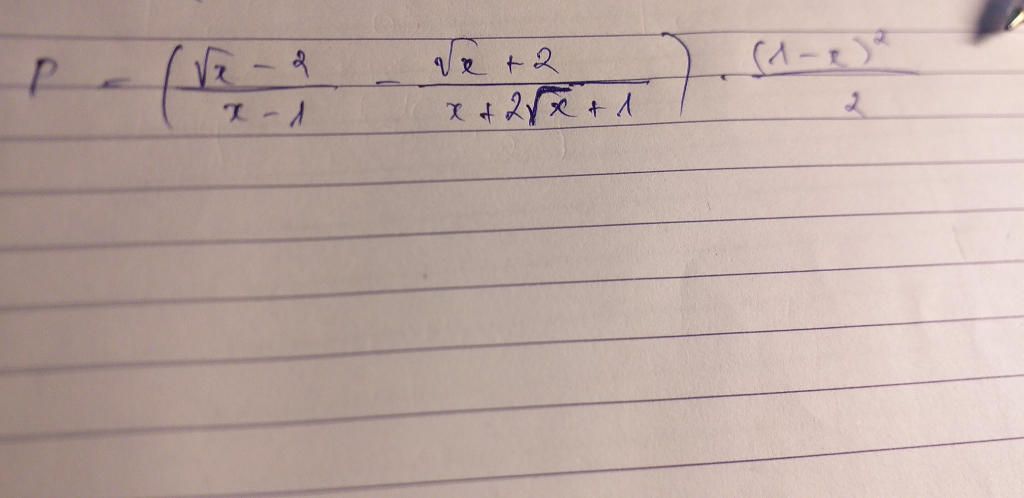 P = ( (√x - 2)/(x - 1) - (√x + 2)/(x + 2√x + 1) ) . (1 - x)²/2